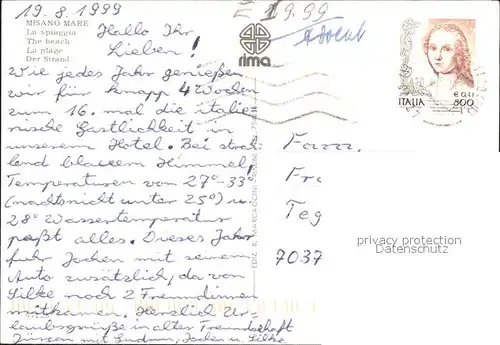 19.8.1999
MISANO MARE
La spiaggia
The beach
La plage
Der Strand
Hallo Ihr
Lieben!
Wie jedes Jahr genießen
wir für knapp 4 Wochen
zum 16. mal die italie-
nische Gastlichkeit in
unserem Hotel. Bei strah-
lend blauem Himmel,
Temperaturen von 27°-33°
(nachts nicht unter 25°) u.
28° Wassertemperatur
paßt alles. Dieses Jahr
fuhr Jochen mit seinem
Auto zusätzlich, da von
Silke noch 2 Freundinnen
mitkamen. Herzlich Ur-
laubsgrüße in alter Freundschaft
Jürgen mit Gudrun, Jochen u. Silke
rima
EDIZ. E. MARCACCINI
19.99
Advent
€ 0,41
ITALIA 800
Fam.
Fr
Teg
7037
privacy protection
Datenschutz